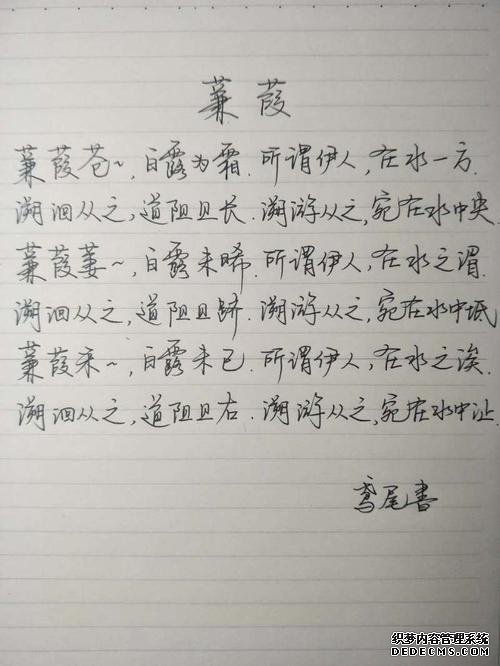 蒹葭
蒹葭苍~,白露为霜.所谓伊人,在水一方.
溯洄从之,道阻且长.溯游从之,宛在水中央.
蒹葭萋~,白露未晞.所谓伊人,在水之湄.
溯洄从之,道阻且跻.溯游从之,宛在水中坻.
蒹葭采~,白露未已.所谓伊人,在水之涘.
溯洄从之,道阻且右.溯游从之,宛在水中沚.
鸢尾书
织梦内容管理系统
DEDECMS.COM